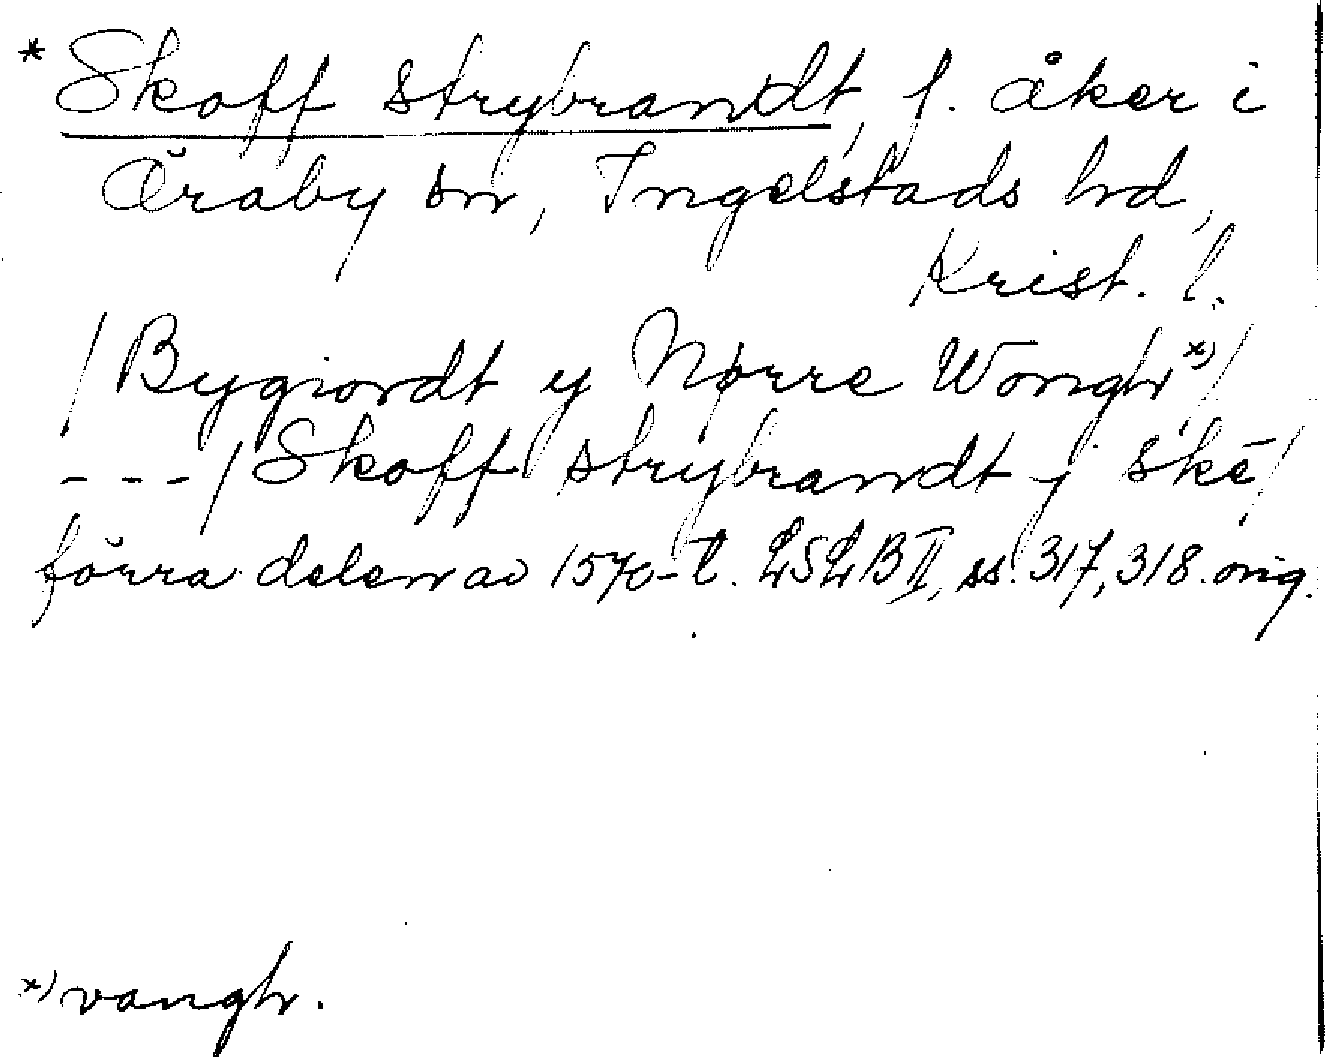 * Skoff strybrandt, f. åker i
Öraby sn, Ingelstads hd,
Krist. l.
/Bygiordt y Nørre Wongh x)/
---/Skoff strybrandt j skē/
förra delen av 1570-t. LSLB II, ss. 317, 318. orig.
x) vangh.